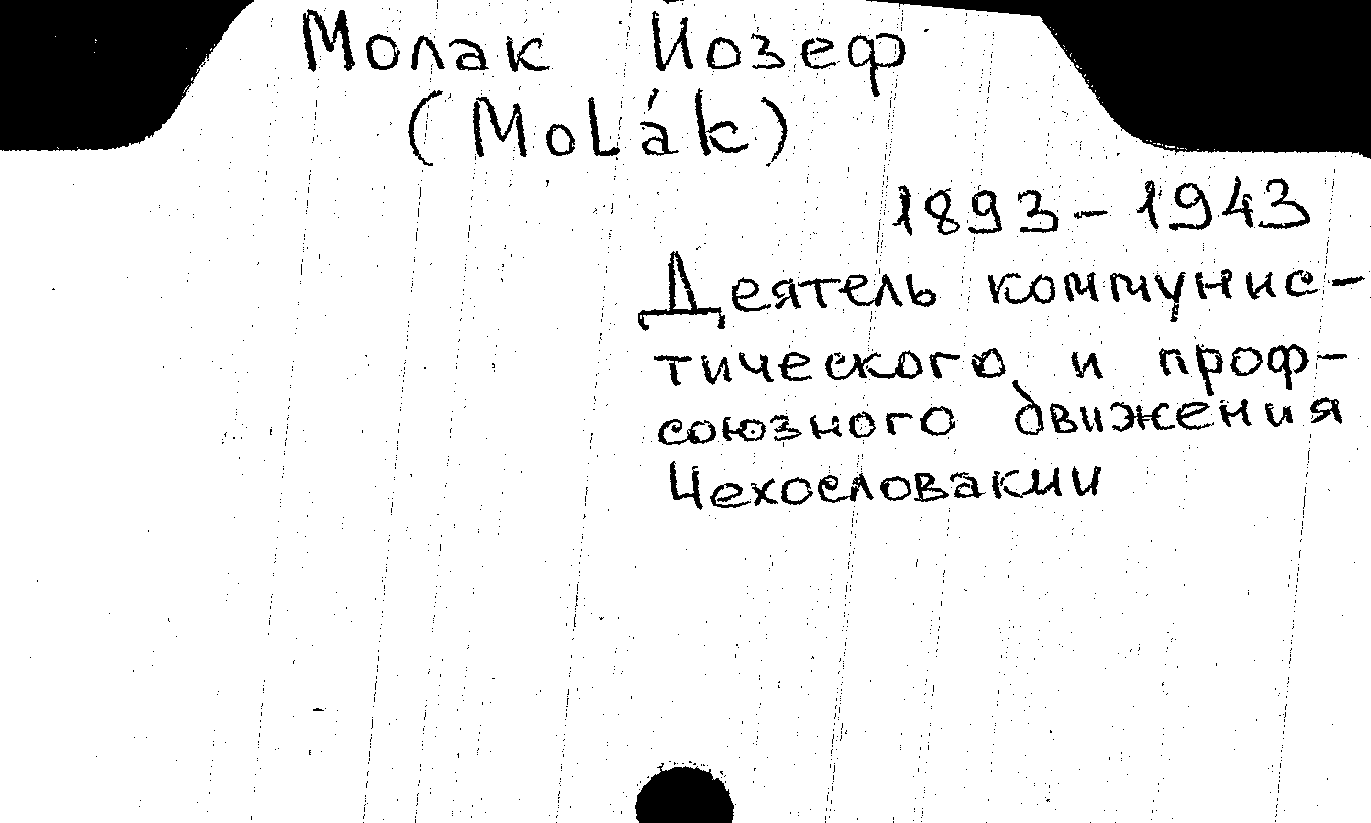 Молак Йозеф
(Molák)
1893-1943
Деятель коммунис-
тического и проф-
союзного движения
Чехословакии